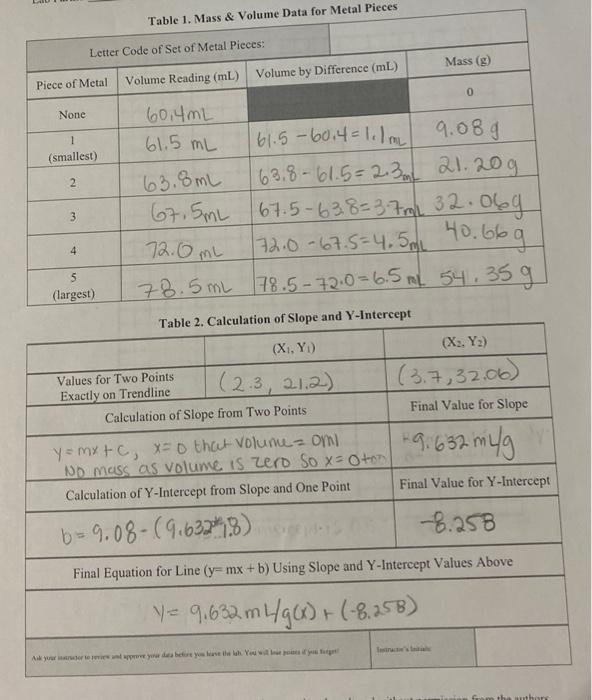 Table 1. Mass & Volume Data for Metal Pieces
Letter Code of Set of Metal Pieces:
Piece of Metal Volume Reading (mL) Volume by Difference (mL) Mass (g)
None 60.4mL 0
1 (smallest) 61.5 mL 61.5 - 60.4 = 1.1 mL 9.08 g
2 63.8mL 63.8 - 61.5 = 2.3mL 21.20g
3 67.5mL 67.5 - 63.8 = 3.7mL 32.06g
4 72.0 mL 72.0 - 67.5 = 4.5mL 40.66g
5 (largest) 78.5 mL 78.5 - 72.0 = 6.5 mL 54.35 g
Table 2. Calculation of Slope and Y-Intercept
(X₁, Y₁) (X₂, Y₂)
Values for Two Points
Exactly on Trendline (2.3, 21.2) (3.7, 32.06)
Calculation of Slope from Two Points Final Value for Slope
y = mx + c, x = 0 that volume = 0ml
No mass as volume is zero so x = 0
9.632 mL/g
Calculation of Y-Intercept from Slope and One Point Final Value for Y-Intercept
b = 9.08 - (9.632 1.8) -8.258
Final Equation for Line (y= mx + b) Using Slope and Y-Intercept Values Above
y = 9.632 mL/g(x) + (-8.258)
Ask your instructor to review and approve your data before you leave the lab. You will lose points if you forget! Instructor's Initials
permission from the authors